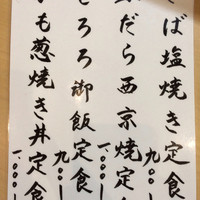 ば塩焼き定食
九〇〇
だら西京焼定
一、〇〇〇
ろろ御飯定食
九〇〇
も葱焼き丼定食
一、〇〇〇